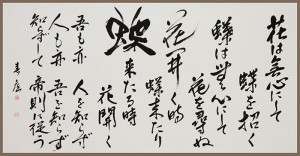 花は無心にして
蝶を招く
蝶は無心にして
花を尋ぬ
花開く時
蝶来たり
蝶
来たる時
花開く
吾も亦
人を知らず
人も亦
吾を知らず
知らずして
帝則に従う